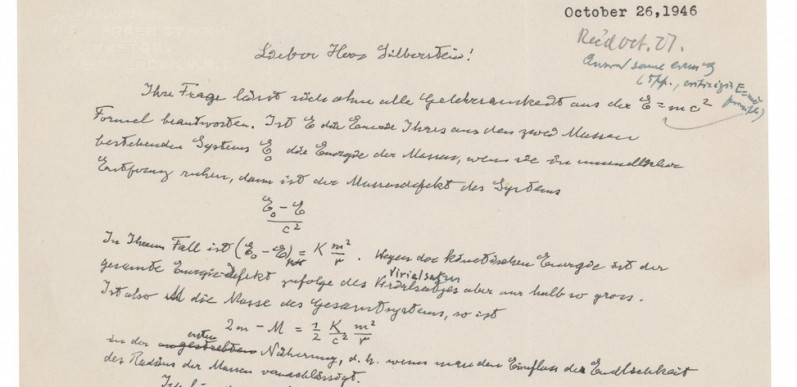 October 26, 1946
Rec'd Oct. 27.
Answ. same evening
(4 pp., criticizing E=mc²
formula)
Lieber Herr Silberstein!
Ihre Frage lässt sich ohne alle Gelehrsamkeit aus der E = mc²
Formel beantworten. Ist E die Energie Ihres aus den zwei Massen
bestehenden Systems E₀ die Energie der Massen, wenn sie in unendlicher
Entfernung ruhen, dann ist der Massendefekt des Systems
E₀ − E
c²
In Ihrem Fall ist (E₀ − E) = K m²/r. Wegen der kinetischen Energie ist der
gesamte Energie-Defekt zufolge des Virialsatzes aber nur halb so gross.
Virialsatzes
Ist also M die Masse des Gesamtsystems, so ist
2m − M = 1/2 K/c² m²/r
ersten
in der Näherung, d. h. wenn man den Einfluss der Endlichkeit
des Radius der Massen vernachlässigt.